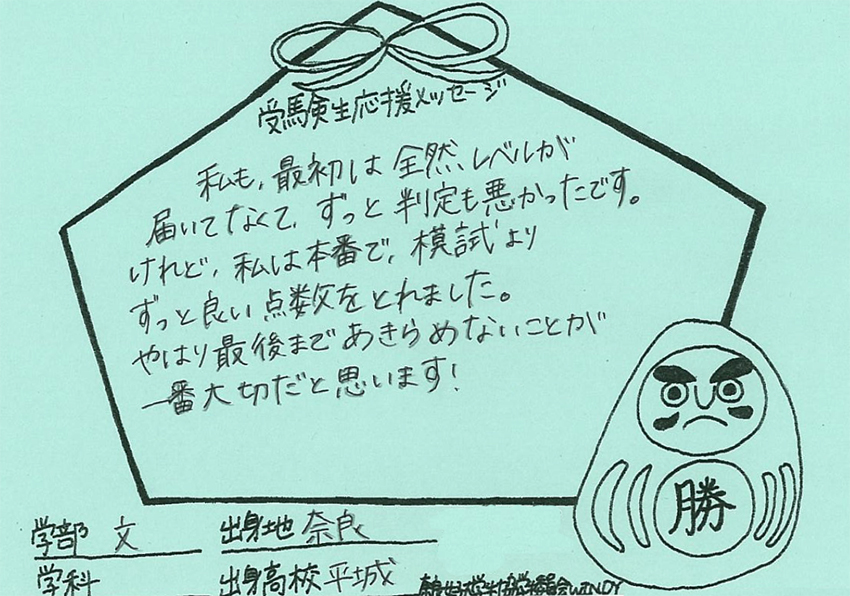 受験生応援メッセージ
私も、最初は全然、レベルが
届いてなくて、ずっと判定も悪かったです。
けれど、私は本番で、模試より
ずっと良い点数をとれました。
やはり最後まであきらめないことが
一番大切だと思います!
勝
学部 文 出身地 奈良
学科 出身高校 平城
WINDY